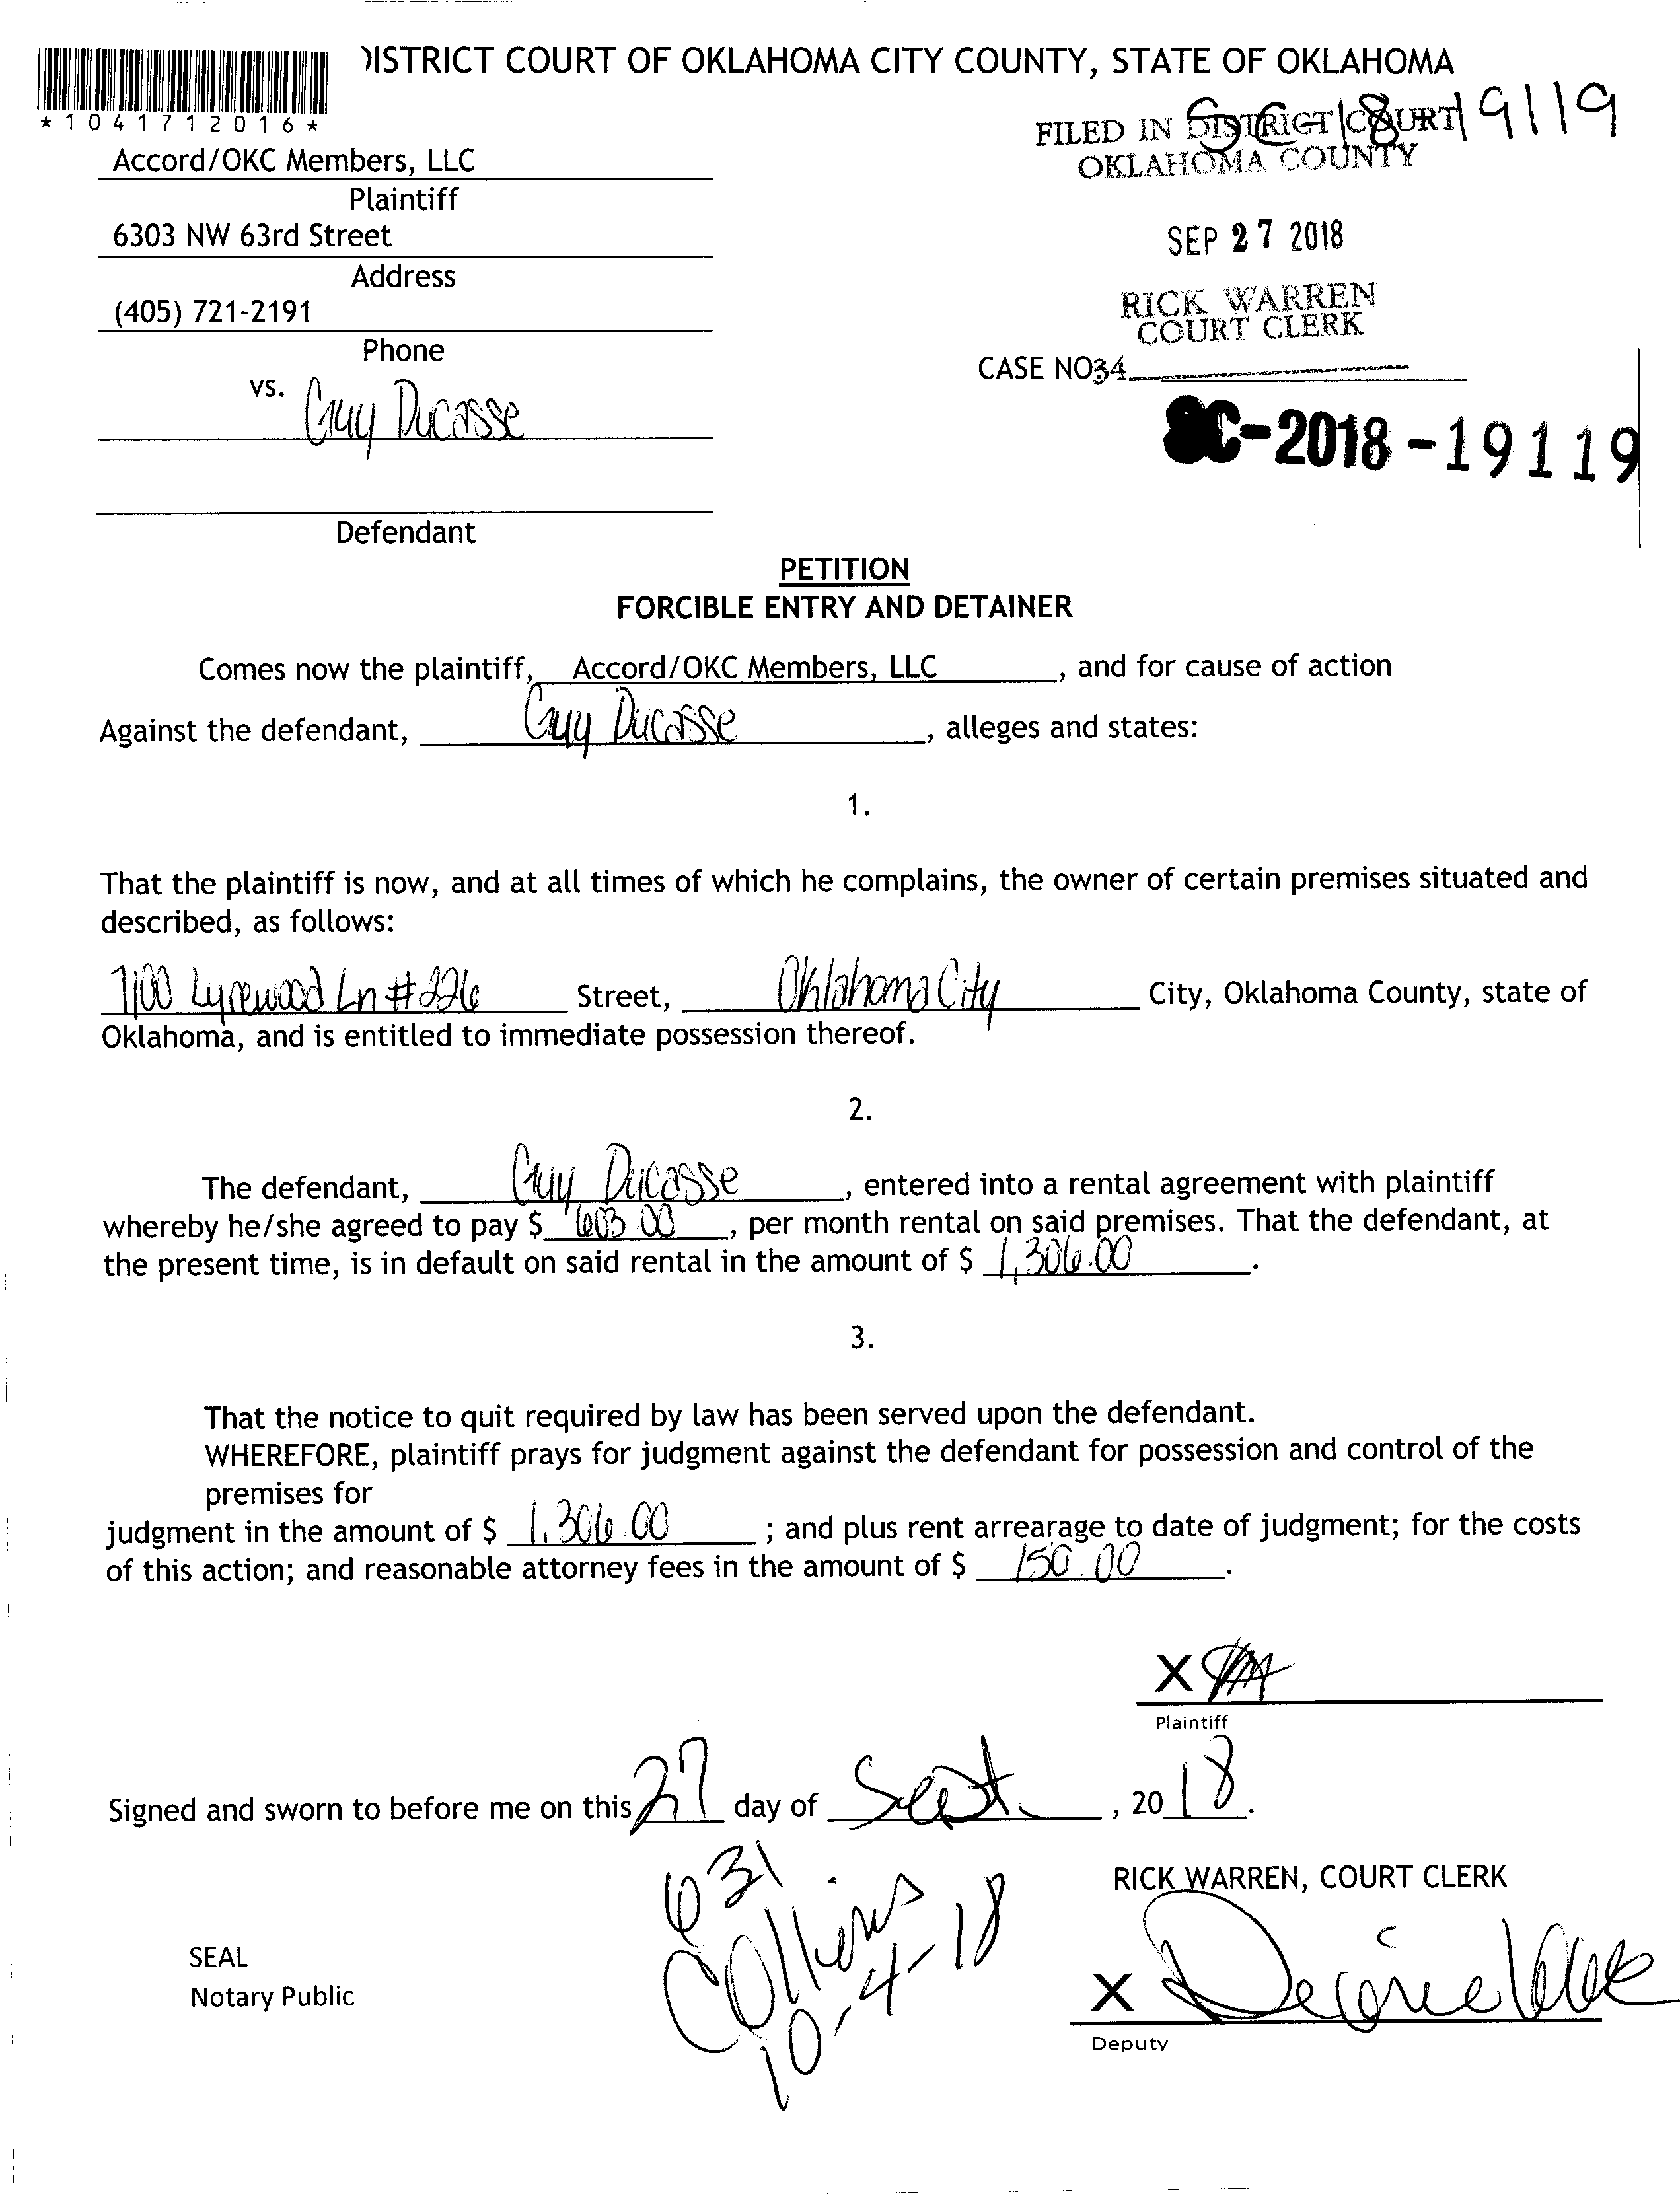 DISTRICT COURT OF OKLAHOMA CITY COUNTY, STATE OF OKLAHOMA
*1041712016*
SC 18 19119
FILED IN DISTRICT COURT
OKLAHOMA COUNTY
Accord/OKC Members, LLC
Plaintiff
6303 NW 63rd Street
Address
(405) 721-2191
Phone
SEP 27 2018
RICK WARREN
COURT CLERK
CASE NO34
vs. Guy Ducasse
SC-2018-19119
Defendant
PETITION
FORCIBLE ENTRY AND DETAINER
Comes now the plaintiff, Accord/OKC Members, LLC, and for cause of action
Against the defendant, Guy Ducasse, alleges and states:
1.
That the plaintiff is now, and at all times of which he complains, the owner of certain premises situated and
described, as follows:
7100 Lyrewood Ln #226 Street, Oklahoma City City, Oklahoma County, state of
Oklahoma, and is entitled to immediate possession thereof.
2.
The defendant, Guy Ducasse, entered into a rental agreement with plaintiff
whereby he/she agreed to pay $ 603.00, per month rental on said premises. That the defendant, at
the present time, is in default on said rental in the amount of $ 1,306.00.
3.
That the notice to quit required by law has been served upon the defendant.
WHEREFORE, plaintiff prays for judgment against the defendant for possession and control of the
premises for
judgment in the amount of $ 1,306.00; and plus rent arrearage to date of judgment; for the costs
of this action; and reasonable attorney fees in the amount of $ 150.00.
X
Plaintiff
Signed and sworn to before me on this 27 day of Sept., 2018.
631
Collins
10-4-18
RICK WARREN, COURT CLERK
SEAL
Notary Public
X
Deputy